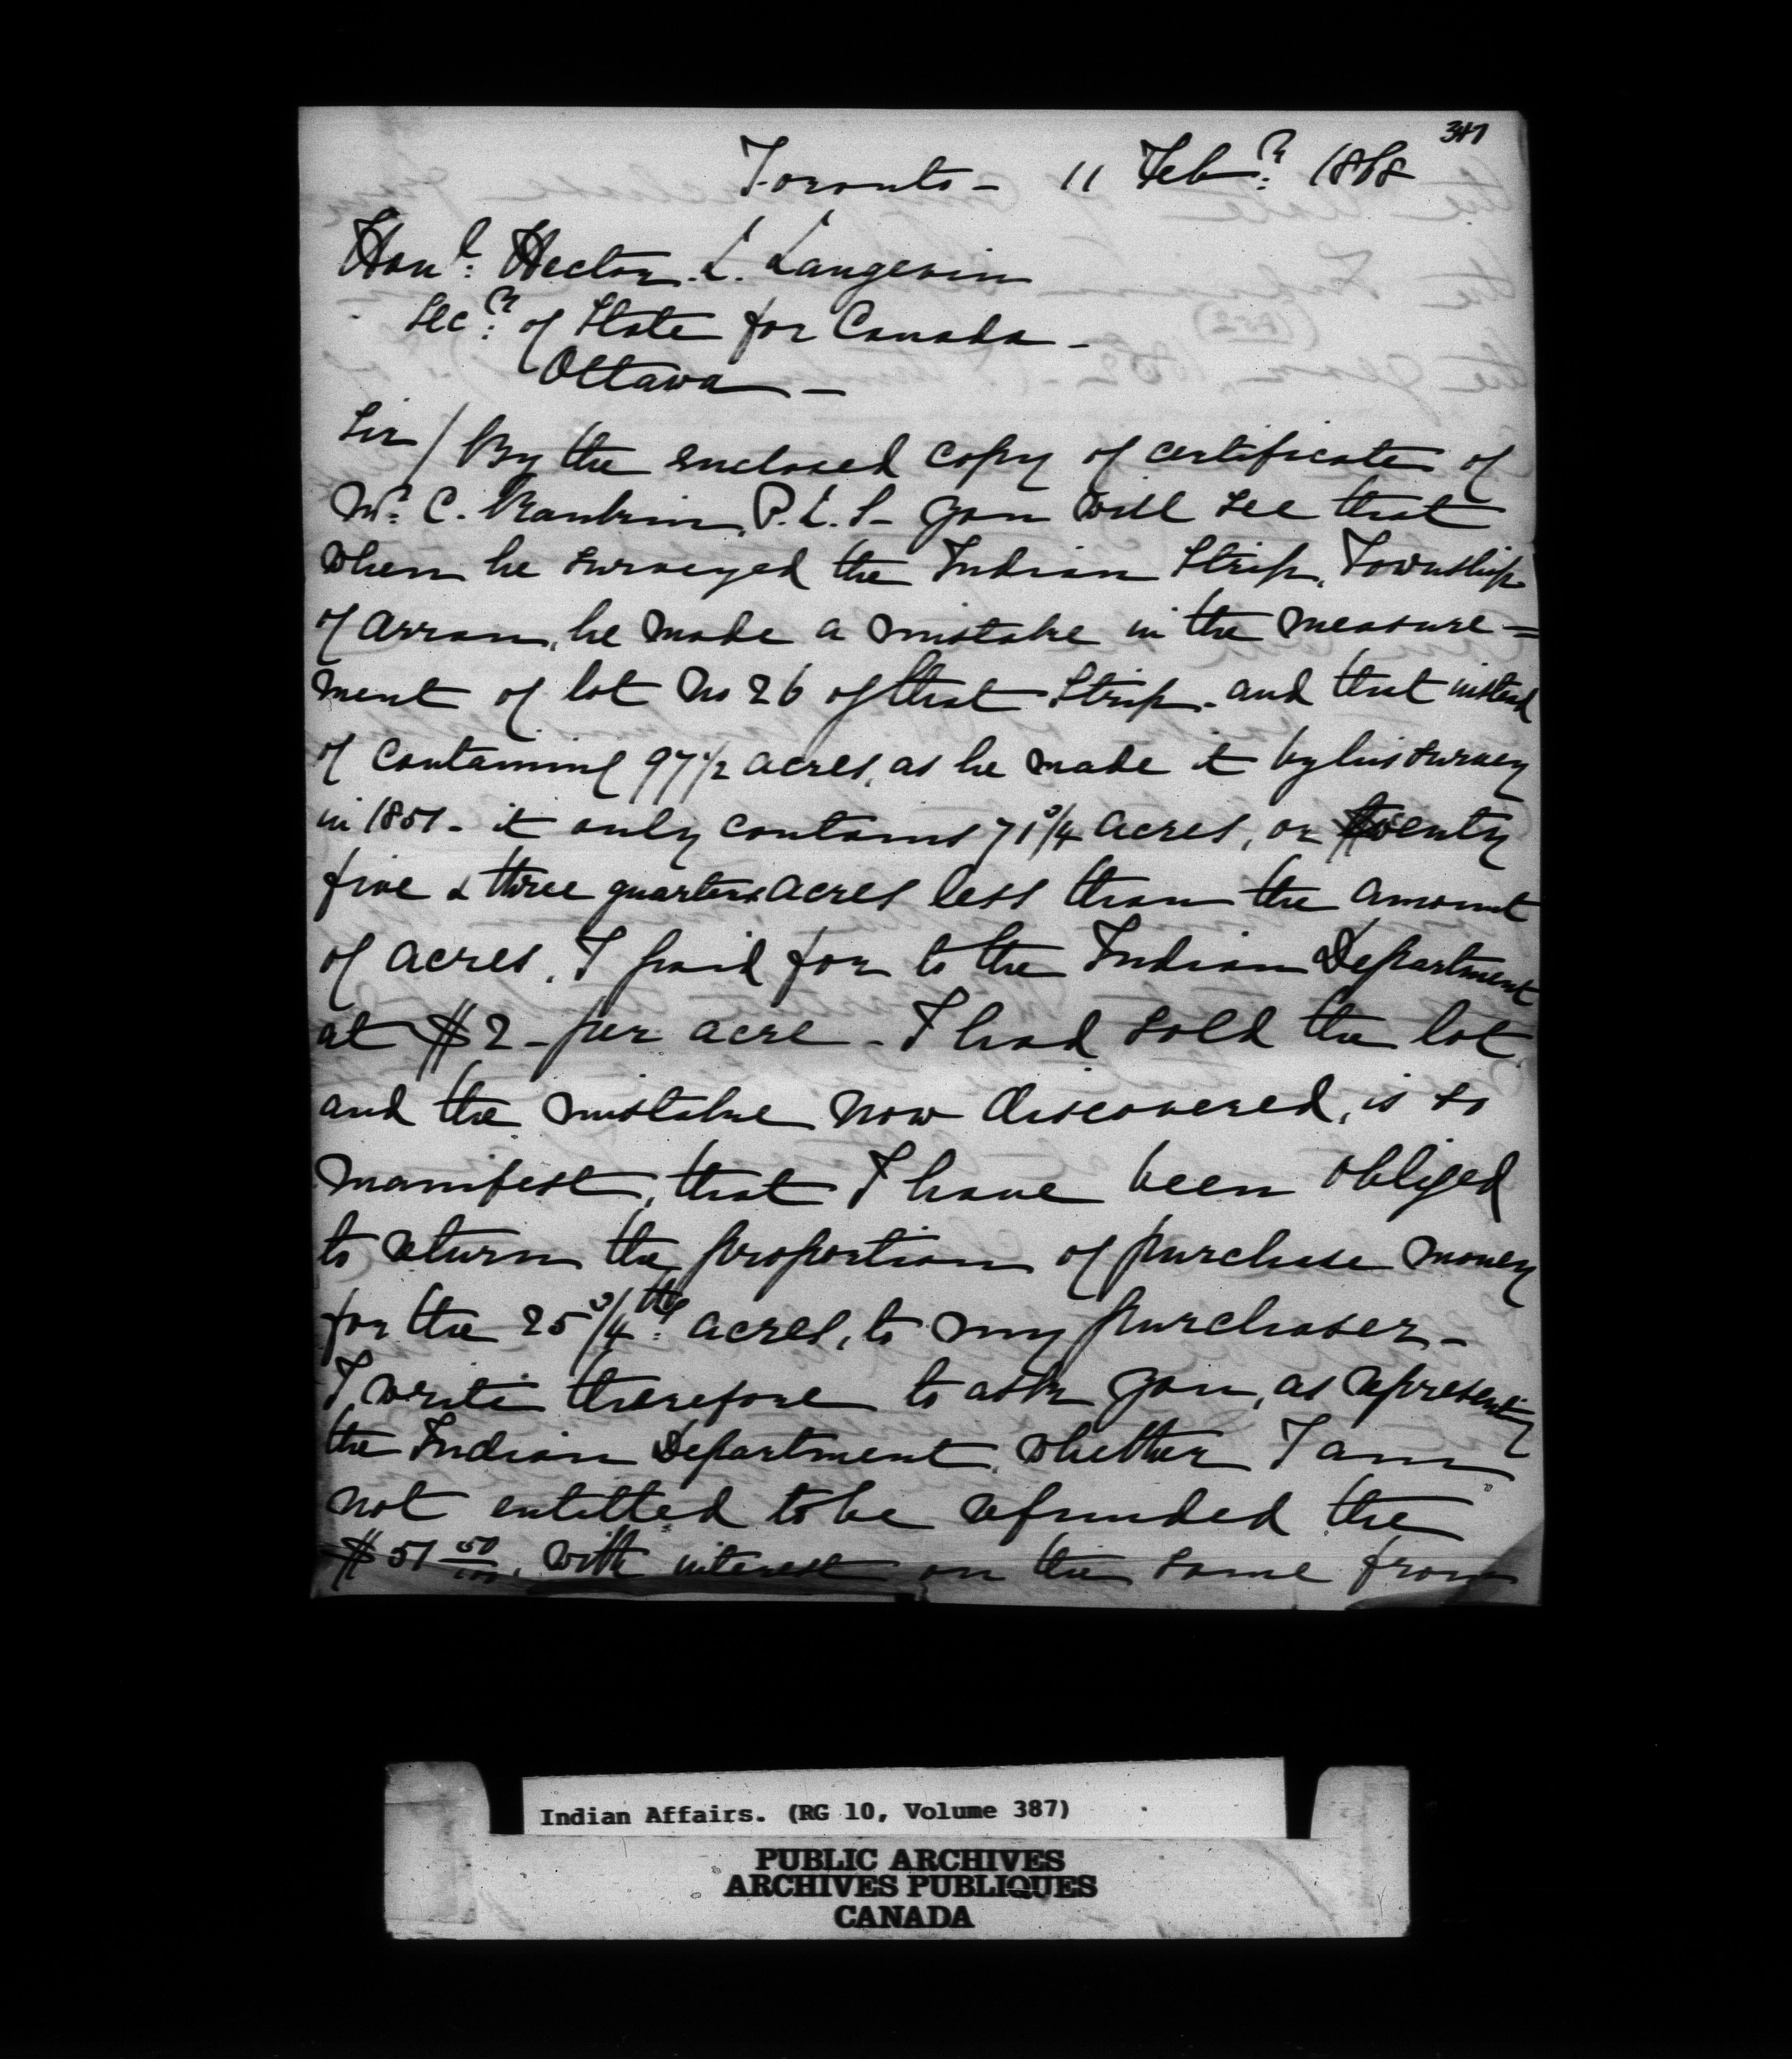 347
Toronto - 11 Feb.ry 1868
Hon.l Hector. L. Langevin
Sec.ry of State for Canada -
Ottawa -
Sir / By the enclosed copy of certificate of
W. C. Rankin, P. L. S - you will see that
when he surveyed the Indian Strip, Township
of Arran, he made a mistake in the measure=
ment of lot No 26 of that Strip - and that instead
of containing 97 1/2 acres, as he made it by his survey
in 1851 - it only contains 71 3/4 acres, or twenty
five & three quarters acres less than the amount
of acres, I paid for to the Indian Department
at $2 - per acre - I had sold the lot
and the mistake now discovered, is so
manifest, that I have been obliged
to return the proportion of purchase money
for the 25 3/4ths acres, to my purchaser -
I write therefore to ask you, as representing
the Indian Department, whether I am
not entitled to be refunded the
$51 50/100, with interest on the same from
Indian Affairs. (RG 10, Volume 387)
PUBLIC ARCHIVES
ARCHIVES PUBLIQUES
CANADA